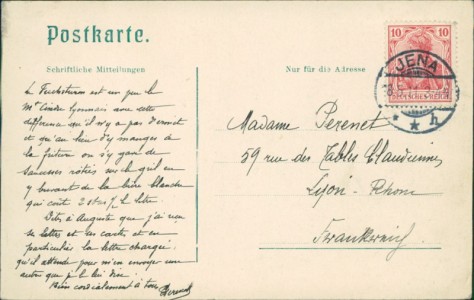 Postkarte.
Schriftliche Mitteilungen
Nur für die Adresse
10 10
DEUTSCHES REICH
JENA
h
Le Fuchsturm est un peu le
Mt Cindre lyonnais avec cette
différence qu'il n'y a pas d'ermite
et qu'au lieu d'y manger de
la friture on s'y gave de
saucisses rôties
y buvant de la bière blanche
qui coûte le litre.
Dites à Auguste que j'ai reçu
sa lettre et ses cartes et en
particulier la lettre chargée
qu'il attende pour m'en envoyer une
autre que je le lui dise.
Bien cordialement à tous Perenet
Madame Perenet
59 rue des Tables Claudiennes
Lyon - Rhône
Frankreich